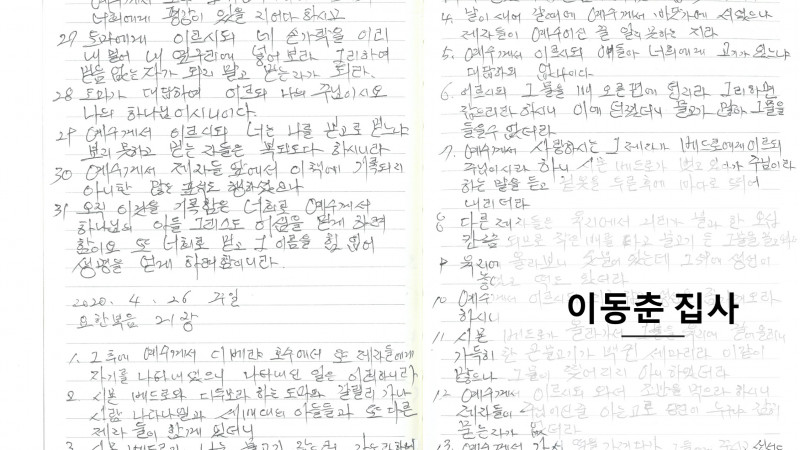 너희에게 평강이 있을 지어다 하시고
27 도마에게 이르시되 네 손가락을 이리
내밀어 내 옆구리에 넣어보라 그리하여
믿음 없는 자가 되지 말고 믿는자가 되라.
28 도마가 대답하여 이르되 나의 주님이시오
나의 하나님이시니이다.
29 예수께서 이르시되 너는 나를 본고로 믿느냐
보지 못하고 믿는 자들은 복되도다 하시니라
30 예수께서 제자들 앞에서 이 책에 기록되지
아니한 많은 표적도 행하셨으나
31 오직 이것을 기록함은 너희로 예수께서
하나님의 아들 그리스도 이심을 믿게 하려
함이요 또 너희로 믿고 그 이름을 힘입어
생명을 얻게 하려함이니라.
2020. 4. 26 주일
요한복음 21장
1. 그 후에 예수께서 디베랴 호수에서 또 제자들에게
자기를 나타내셨으니 나타내신 일은 이러하니라
2 시몬 베드로와 디두모라 하는 도마와 갈릴리 가나
사람 나다나엘과 세베대의 아들들과 또 다른
제자 둘이 함께 있더니
3 시몬 베드로가 나는 물고기
4. 날이 새어 갈때에 예수께서 바닷가에 서셨으나
제자들이 예수이신 줄 알지 못하는 지라
5. 예수께서 이르시되 얘들아 너희에게 고기가 있느냐
대답하되 없나이다
6. 이르시되 그물을 배 오른편에 던지라 그리하면
잡으리라 하시니 이에 던졌더니 물고기가 많아 그물을
들 수 없더라
7. 예수께서 사랑하시는 그 제자가 베드로에게 이르되
주님이시라 하니 시몬 베드로가 벗고 있다가 주님이라
하는 말을 듣고 겉옷을 두른후에 바다로 뛰어
내리더라
8 다른 제자들은 육지에서 거리가 불과 한 오십
칸쯤 되므로 작은 배를 타고 물고기 든 그물을 끌고
9 육지에 올라보니 숯불이 있는데 그 위에 생선이
놓였고 떡도 있더라
10 예수께서 이르시되
하시니
이동춘 집사
11 시몬 베드로가 올라가서 그물을 육지에 끌어올리니
가득히 찬 큰 물고기가 백쉰 세마리라 이같이
많으나 그물이 찢어지지 아니하였더라
12 예수께서 이르시되 와서 조반을 먹으라 하시니
제자들이 주님이신줄 아는고로 당신이 누구냐 감히
묻는 자가 없더라
13 예수께서 가셔서 떡을 가져다가